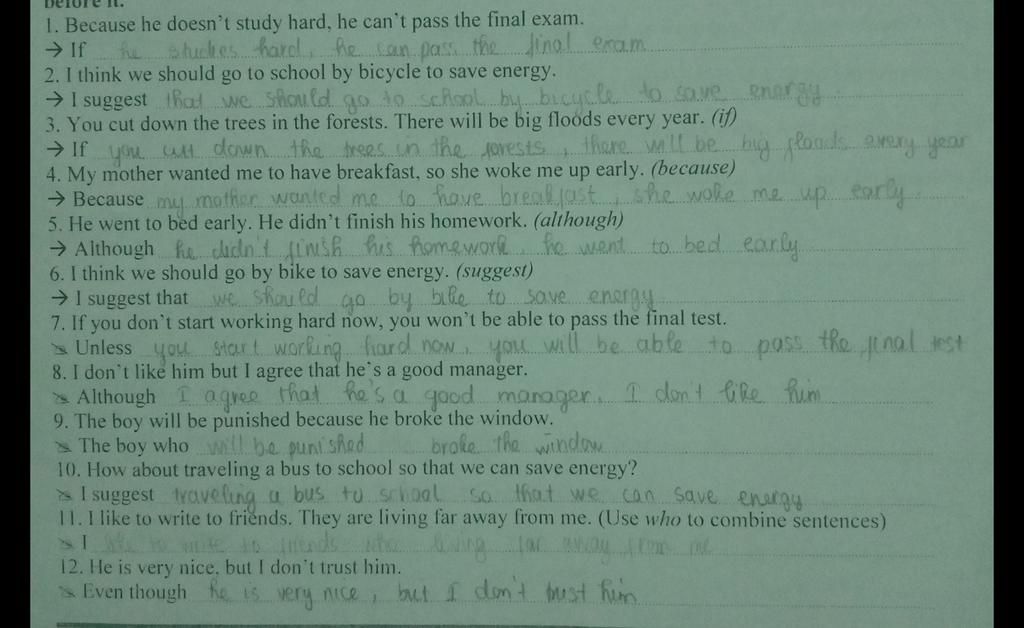 before it.
1. Because he doesn't study hard, he can't pass the final exam.
→ If he studies hard, he can pass the final exam
2. I think we should go to school by bicycle to save energy.
→ I suggest that we should go to school by bicycle to save energy
3. You cut down the trees in the forests. There will be big floods every year. (if)
→ If you cut down the trees in the forests, there will be big floods every year
4. My mother wanted me to have breakfast, so she woke me up early. (because)
→ Because my mother wanted me to have breakfast, she woke me up early
5. He went to bed early. He didn't finish his homework. (although)
→ Although he didn't finish his homework, he went to bed early
6. I think we should go by bike to save energy. (suggest)
→ I suggest that we should go by bike to save energy
7. If you don't start working hard now, you won't be able to pass the final test.
Unless you start working hard now, you will be able to pass the final test
8. I don't like him but I agree that he's a good manager.
Although I agree that he's a good manager, I don't like him
9. The boy will be punished because he broke the window.
The boy who will be punished broke the window
10. How about traveling a bus to school so that we can save energy?
I suggest traveling a bus to school so that we can save energy
11. I like to write to friends. They are living far away from me. (Use who to combine sentences)
I like to write to friends who living far away from me
12. He is very nice, but I don't trust him.
Even though he is very nice, but I don't trust him